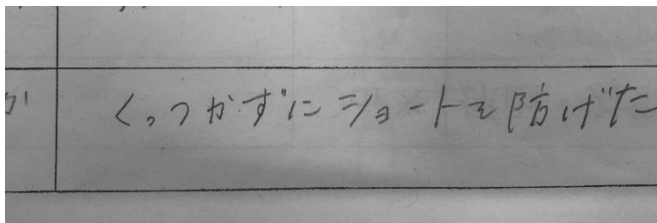 が
くっつかずにショートを防げた